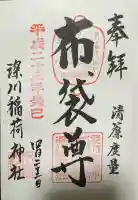 奉拝
清廉度量
布袋尊
平成二十五年癸巳
深川稲荷神社